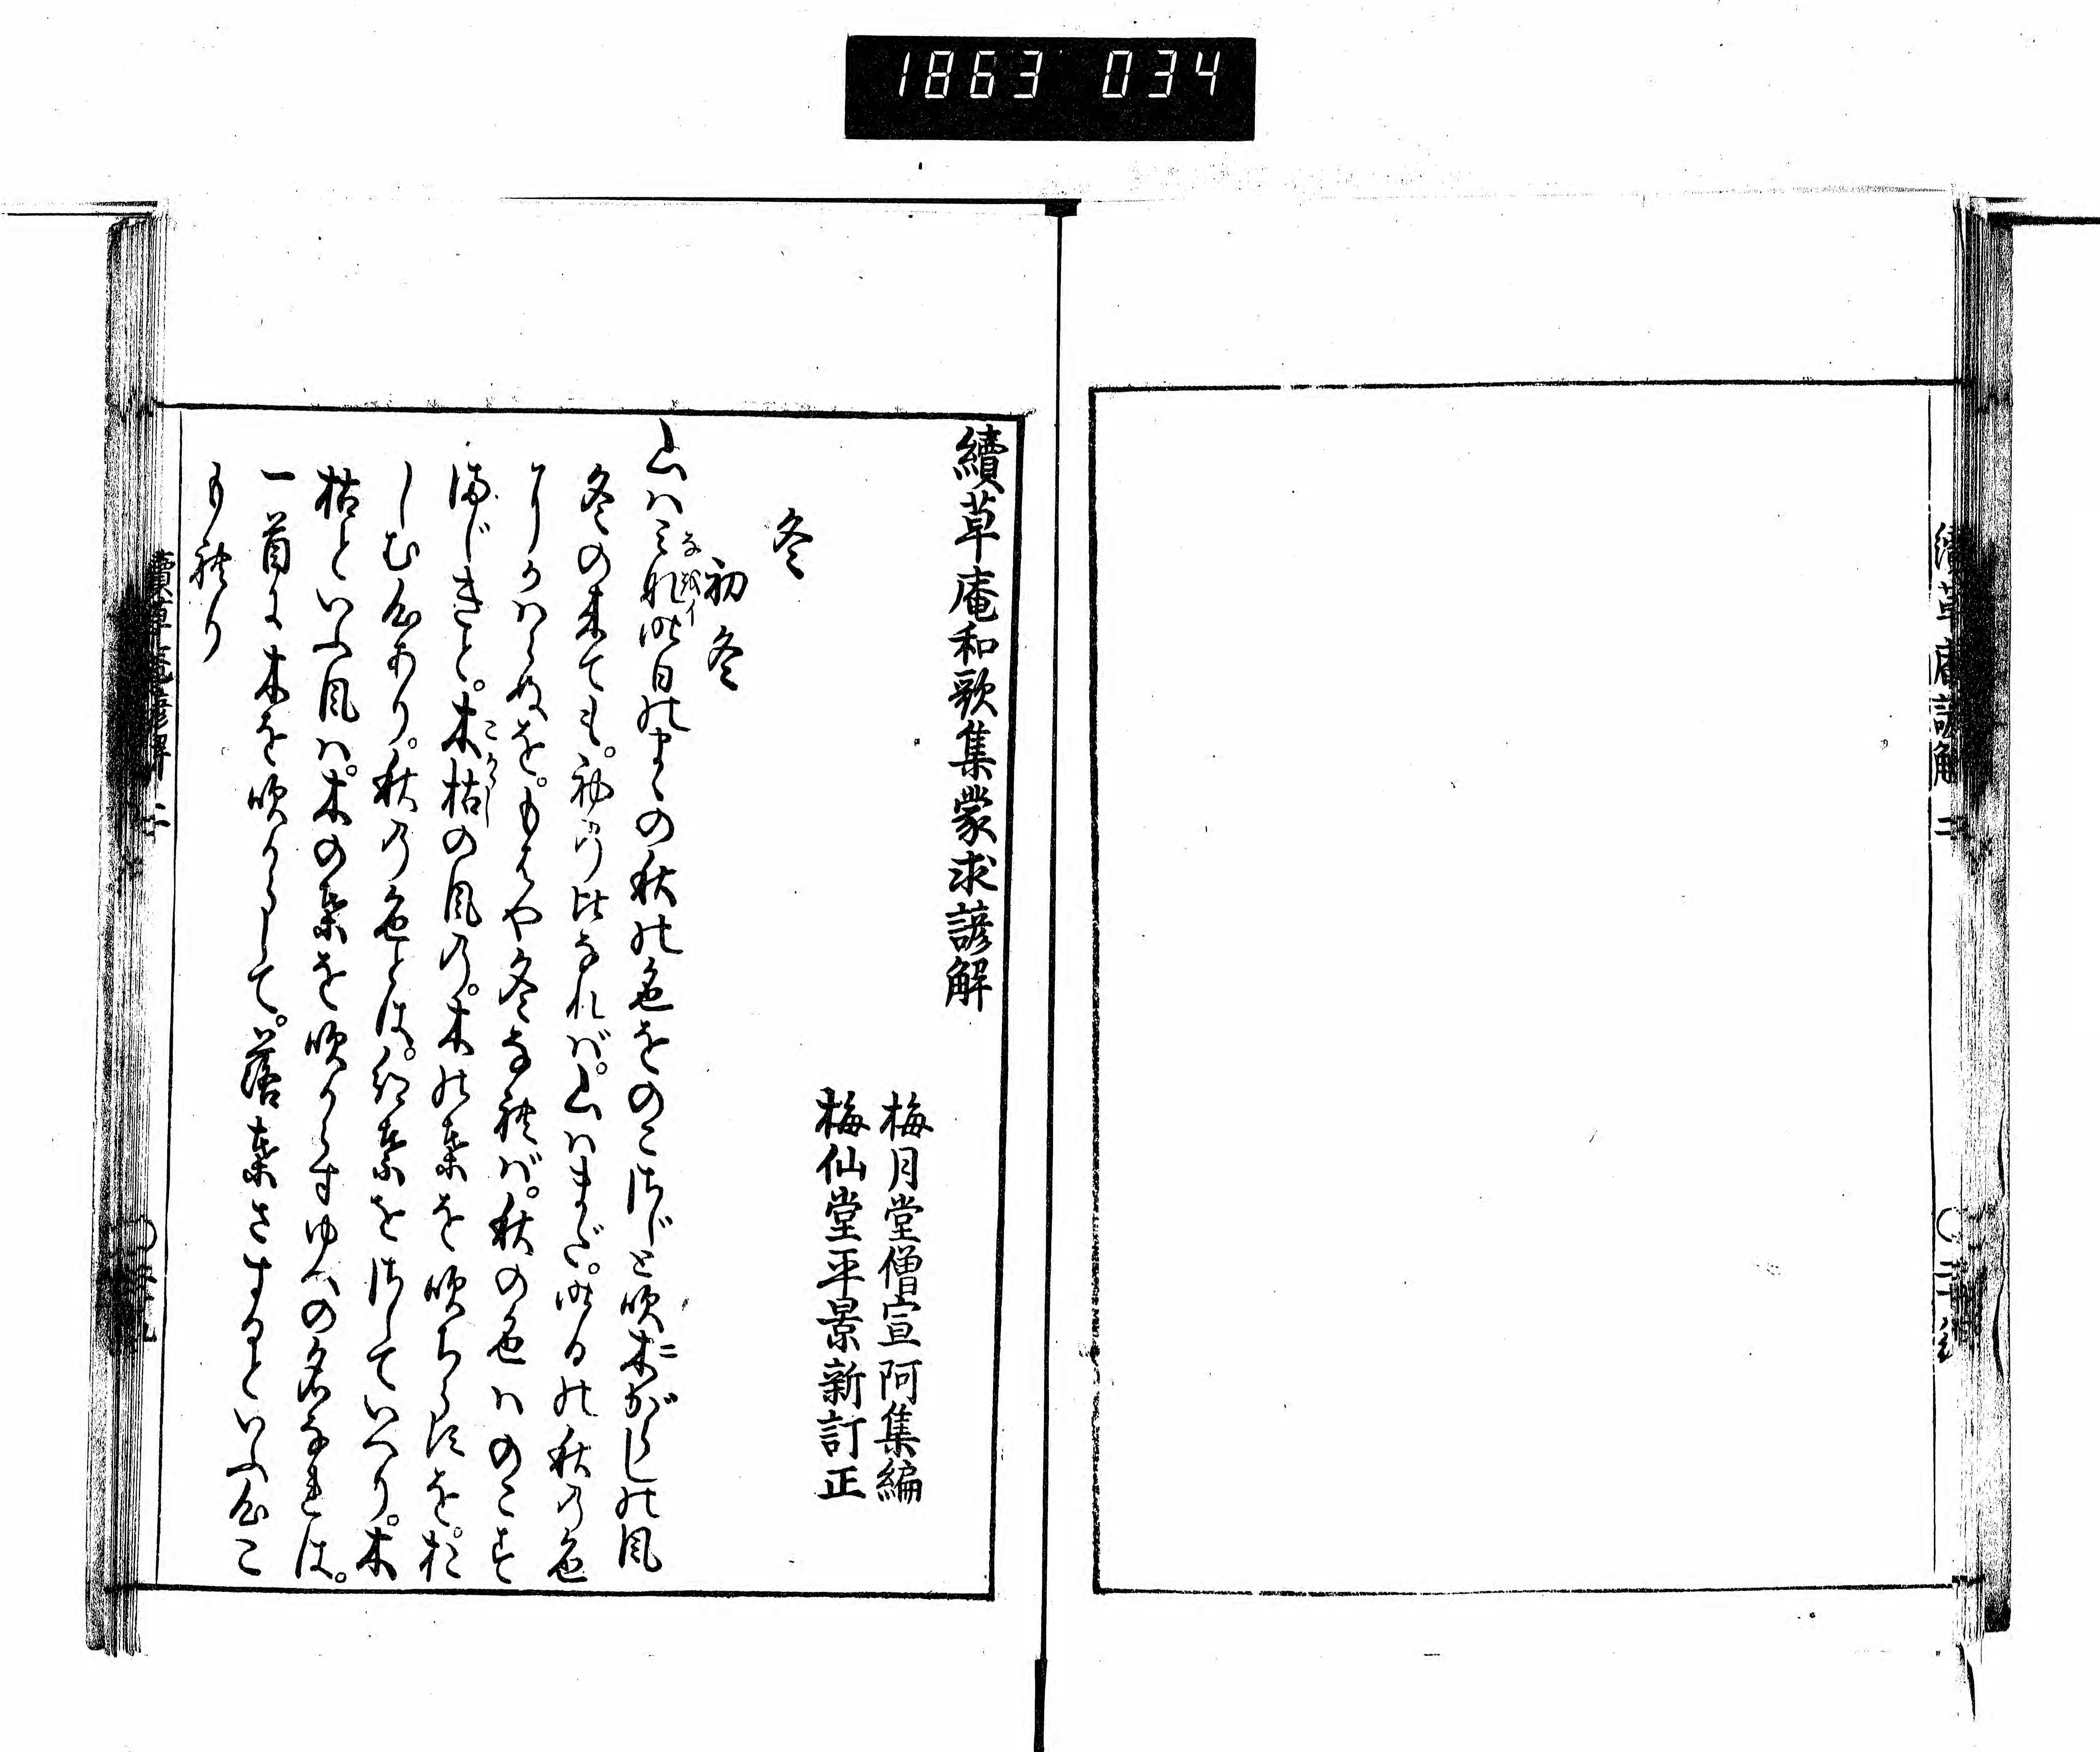 1863 034
續草庵和歌集蒙求諺解
梅月堂僧宣阿集編
梅仙堂平景新訂正
冬
初冬
山はみな昨日のまゝの秋の色をのこさじと吹木がらしの風
冬の来ても。初の比なれば。山はまだ。昨日の秋の色
よりかはらぬを。もはや冬なれば。秋の色はのこす
まじきと。木枯の風の。木の葉を吹ちらすを。お
しむ心あり。秋の色とは。紅葉をさしていへり。木
枯といふ風は。木の葉を吹からすゆへの名なれは。
一首に木を吹からして。落葉さするといふ心こ
もれり
續草庵諺解 二